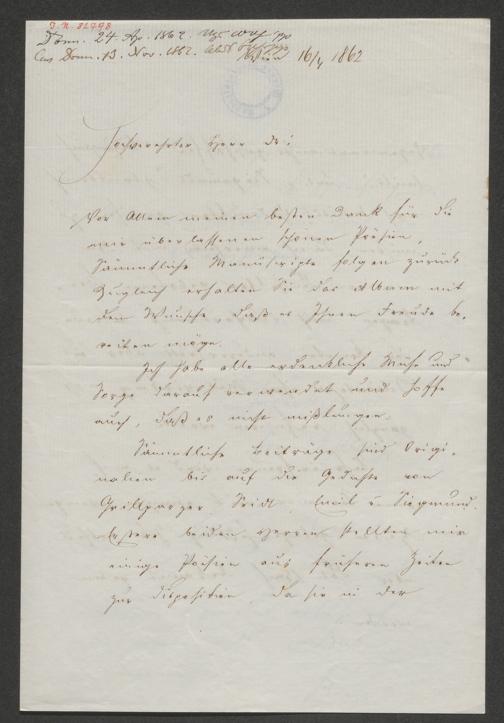 I. N. 32798
Donn. 24 Ap. 1862.
Donn. 13. Nov. 1862.
Wien 16/4 1862
Hochverehrter Herr Dr!
Vor Allem meinen besten Dank für die
mir überlassenen schönen Poësien,
Sämmtliche Manuscripte folgen zurück
Zugleich erhalten Sie das Album mit
dem Wunsche, daß es Ihnen Freude be-
reiten möge.
Ich habe alle erdenkliche Mühe und
Sorge darauf verwendet und hoffe
auch, daß es nicht mißlungen.
Sämmtliche Beiträge sind Origi-
nalien bis auf die Gedichte von
Grillparzer Seidl, Emil u Siegmund.
Erstere beiden Herren stellten mir
einige Poësien aus früheren Zeiten
zur Disposition, da sie in der